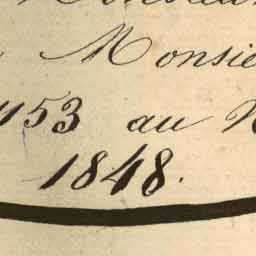 Monsie
453 au N
1848.